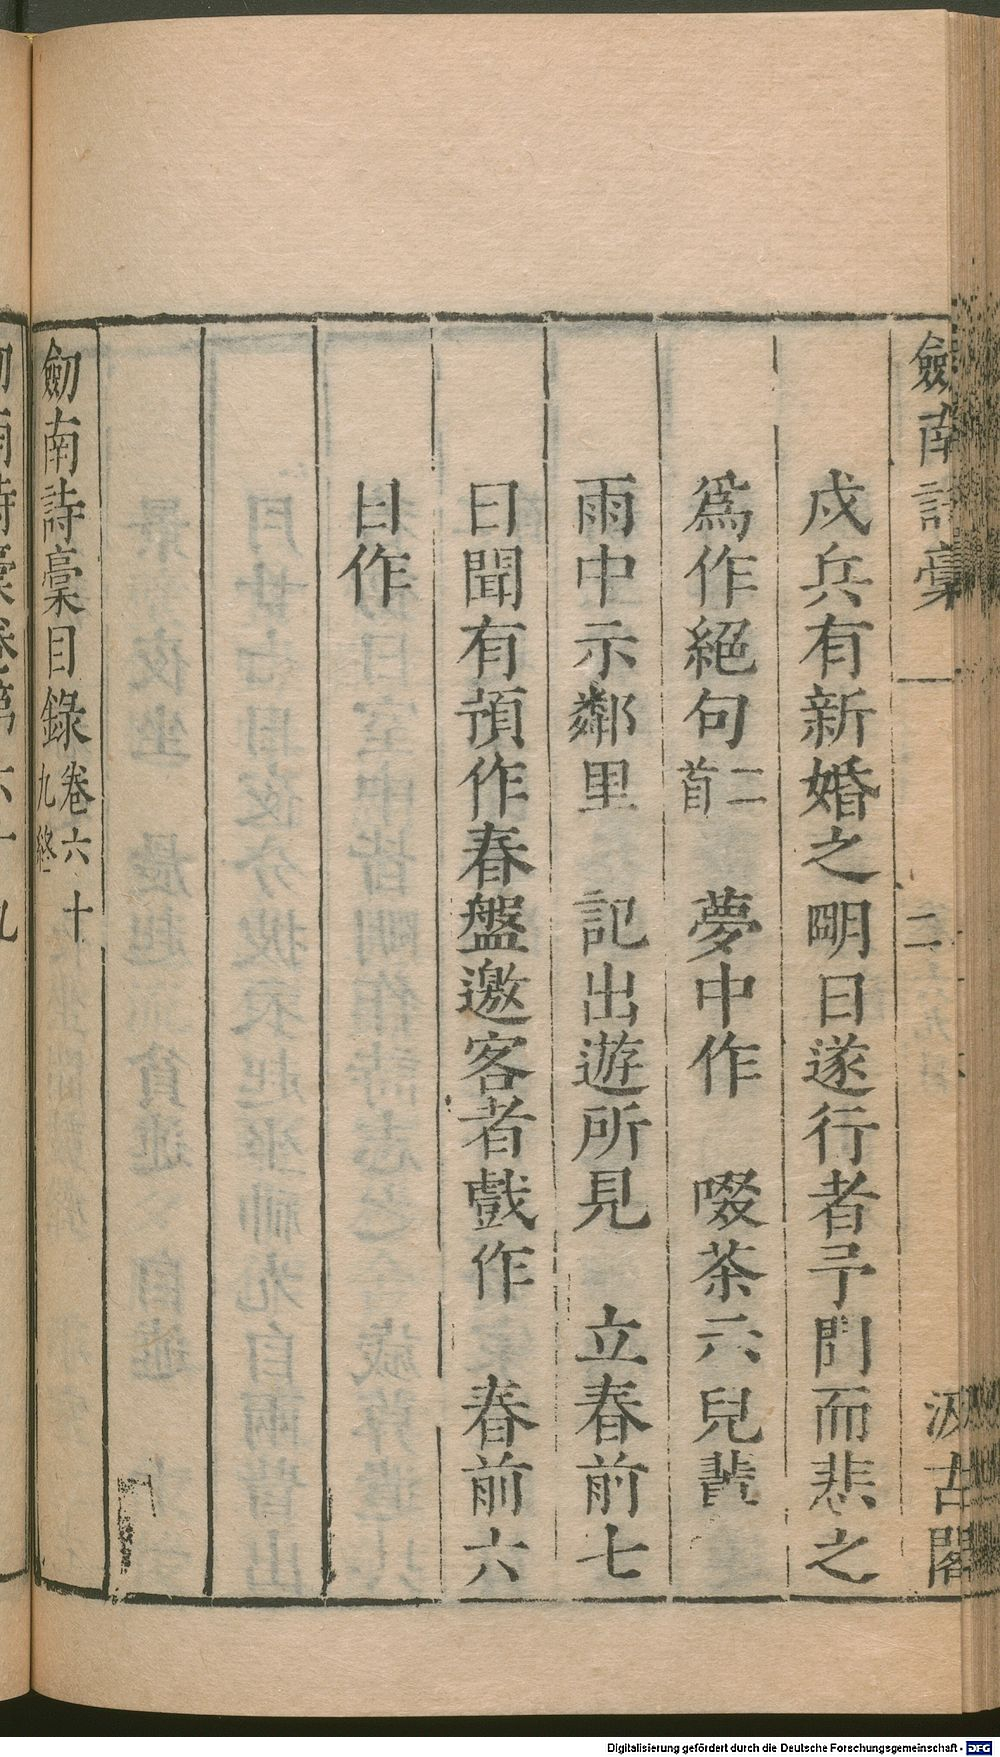 劍南詩稾
二
汲古閣
戍兵有新婚之明日遂行者予聞而悲之
爲作絕句二首　夢中作　啜茶示兒輩
雨中示鄰里　記出遊所見　立春前七
日聞有預作春盤邀客者戲作　春前六
日作
劒南詩稾目錄卷六十九終
Digitalisierung gefördert durch die Deutsche Forschungsgemeinschaft - DFG